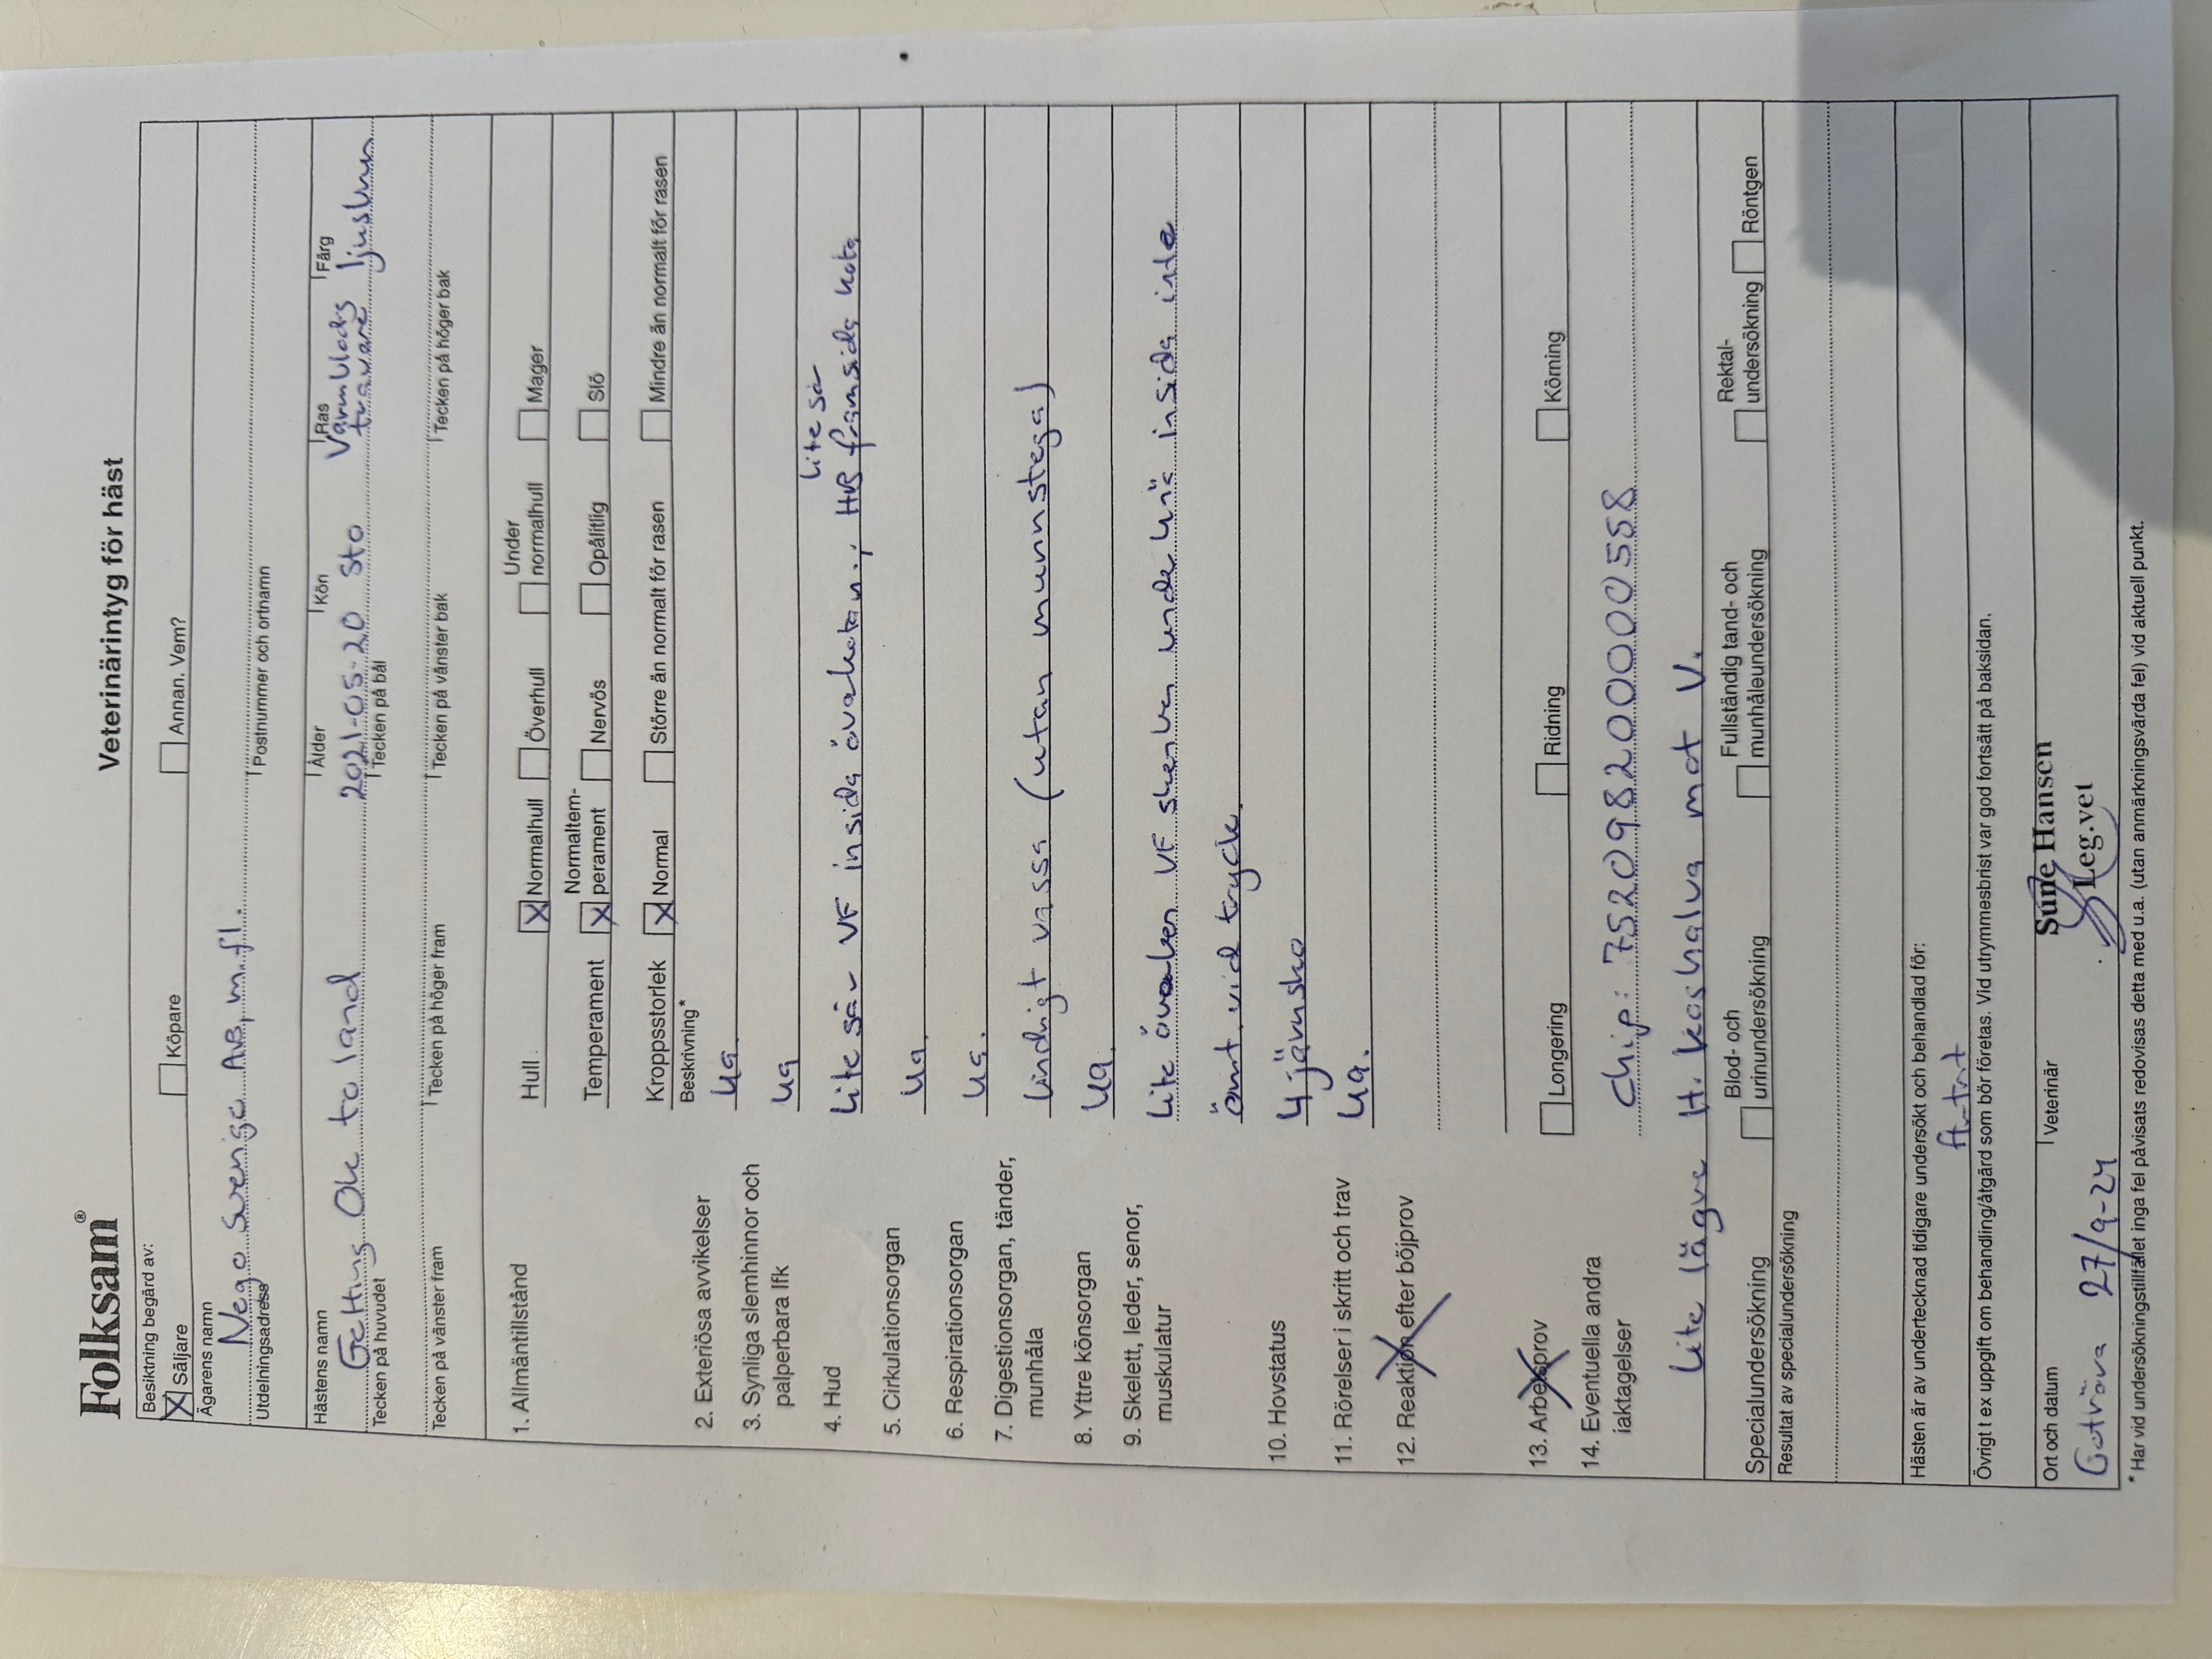 Folksam®
Veterinärintyg för häst
Besiktning begärd av:
X Säljare Köpare Annan. Vem?
Ägarens namn
Nego Sverige AB, m.fl.
Utdelningsadress Postnummer och ortnamn
Hästens namn Ålder Kön Ras Färg
Getting Ok to land 2021-05-20 Sto Varmblods travare ljusbrun
Tecken på huvudet Tecken på bål
Tecken på vänster fram Tecken på höger fram Tecken på vänster bak Tecken på höger bak
1. Allmäntillstånd Hull X Normalhull Överhull Under normalhull Mager
Temperament X Normaltem-perament Nervös Opålitlig Slö
Kroppsstorlek X Normal Större än normalt för rasen Mindre än normalt för rasen
Beskrivning*
2. Exteriösa avvikelser ua.
3. Synliga slemhinnor och
palperbara lfk ua
lite sår
4. Hud Lite sår VF insida överkotan.; HB framsida kota
5. Cirkulationsorgan ua.
6. Respirationsorgan ua.
7. Digestionsorgan, tänder,
munhåla lindrigt vassa (utan munnstega)
8. Yttre könsorgan ua.
9. Skelett, leder, senor,
muskulatur Lite överben VF skenben under knä insida inte
ömt vid tryck.
10. Hovstatus 4 järnsko
11. Rörelser i skritt och trav ua.
12. Reaktion efter böjprov
13. Arbetsprov Longering Ridning Körning
14. Eventuella andra
iaktagelser chip: 752098200000558
Lite lägre H. korshalva mot V.
Specialundersökning Blod- och urinundersökning Fullständig tand- och munhåleundersökning Rektal-undersökning Röntgen
Resultat av specialundersökning
Hästen är av undertecknad tidigare undersökt och behandlad för:
Övrigt t ex uppgift om behandling/åtgärd som bör företas. Vid utrymmesbrist var god fortsätt på baksidan.
Ort och datum Veterinär
27/9-24 Sune Hansen
Leg.vet
* Har vid undersökningstillfället inga fel påvisats redovisas detta med u.a. (utan anmärkningsvärda fel) vid aktuell punkt.